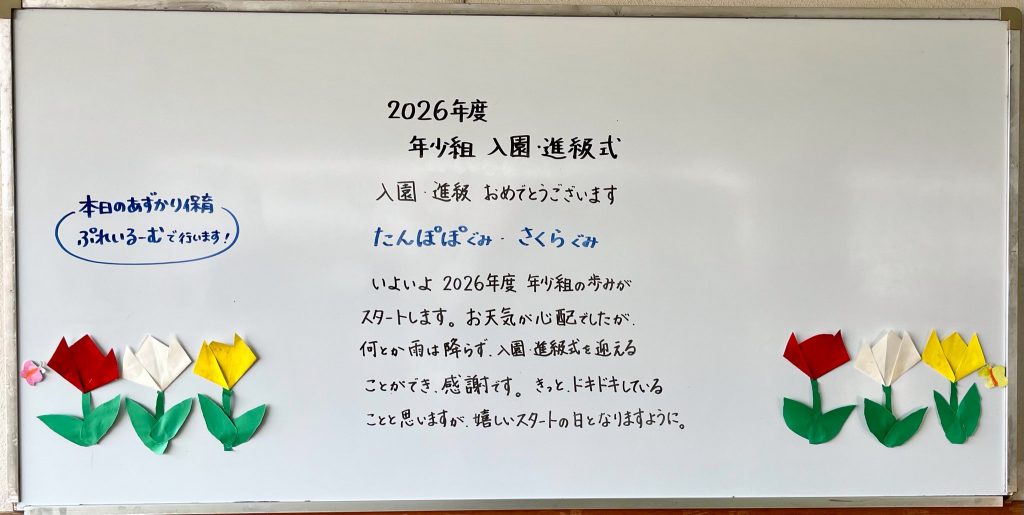 2026年度
年少組 入園・進級式
入園・進級 おめでとうございます
たんぽぽぐみ・さくらぐみ
いよいよ 2026年度 年少組の歩みが
スタートします。お天気が心配でしたが、
何とか雨は降らず、入園・進級式を迎える
ことができ、感謝です。きっと、ドキドキしている
ことと思いますが、嬉しいスタートの日となりますように。
本日のあずかり保育
ぷれいるーむで行います!